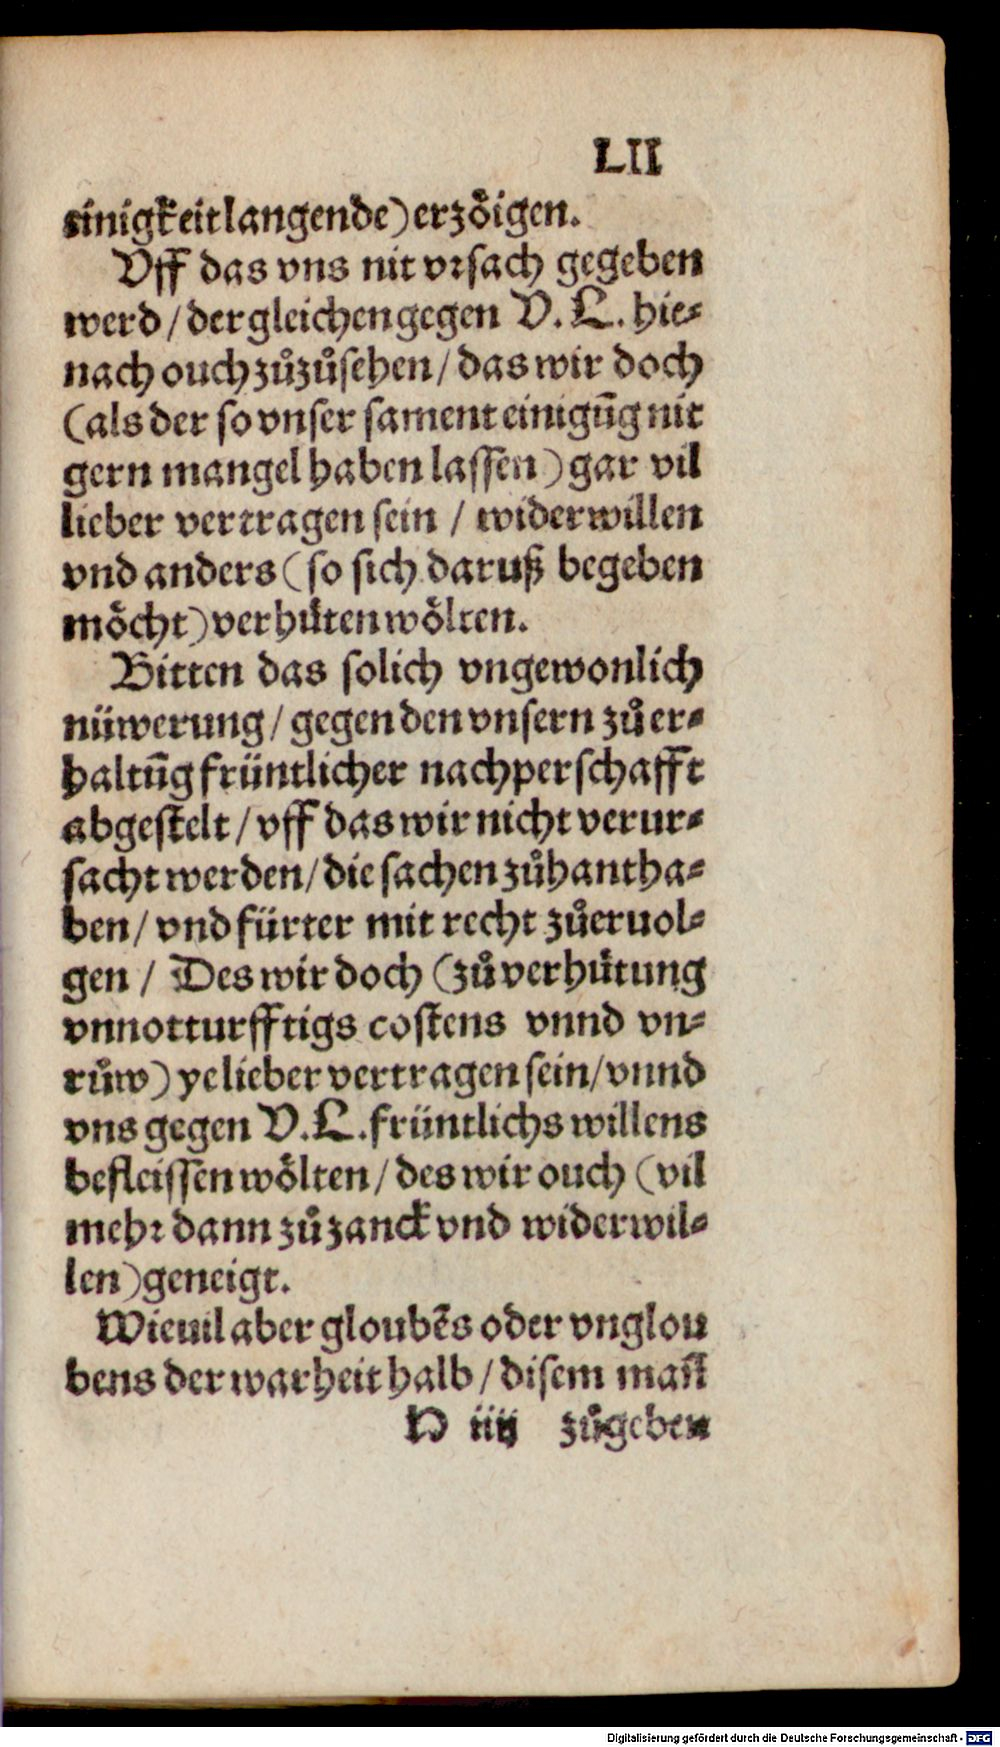 LII
einigkeit langende) erzoͤigen.
Vff das vns nit vꝛsach gegeben
werd / der gleichen gegen V. L. hie⸗
nach ouch zuͦzuͦsehen / das wir doch
(als der so vnser sament einigūg nit
gern mangel haben lassen) gar vil
lieber vertragen sein / widerwillen
vnd anders (so sich daruß begeben
moͤcht) verhuͤten woͤlten.
Bitten das solich vngewonlich
nüwerung / gegen den vnsern zuͦ er⸗
haltūg früntlicher nachperschafft
abgestelt / vff das wir nicht verur⸗
sacht werden / die sachen zuͦhantha⸗
ben / vnd fürter mit recht zuͦeruol⸗
gen / Des wir doch (zuͦ verhuͤtung
vnnotturfftigs costens vnnd vn⸗
ruͦw) ye lieber vertragen sein / vnnd
vns gegen V. L. früntlichs willens
befleissen woͤlten / des wir ouch (vil
mehꝛ dann zuͦ zanck vnd widerwil⸗
len) geneigt.
Wieuil aber gloubēs oder vnglou
bens der warheit halb / disem mañ
H iiij zuͦgeben
Digitalisierung gefördert durch die Deutsche Forschungsgemeinschaft - DFG